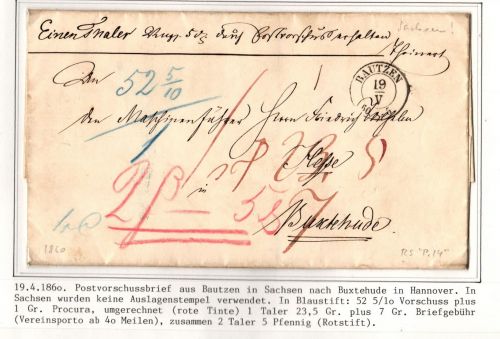 Sachsen!
Einen Thaler Ngr. 5 durch Postvorschuss erhalten
Theinert
BAUTZEN
19
IV
An
52 5/10
1
den Maschinenführer Herrn Friedrich
Hesse
in
Buxtehude.
1860
RS "P.14"
19.4.186o. Postvorschussbrief aus Bautzen in Sachsen nach Buxtehude in Hannover. In
Sachsen wurden keine Auslagenstempel verwendet. In Blaustift: 52 5/1o Vorschuss plus
1 Gr. Procura, umgerechnet (rote Tinte) 1 Taler 23,5 Gr. plus 7 Gr. Briefgebühr
(Vereinsporto ab 4o Meilen), zusammen 2 Taler 5 Pfennig (Rotstift).